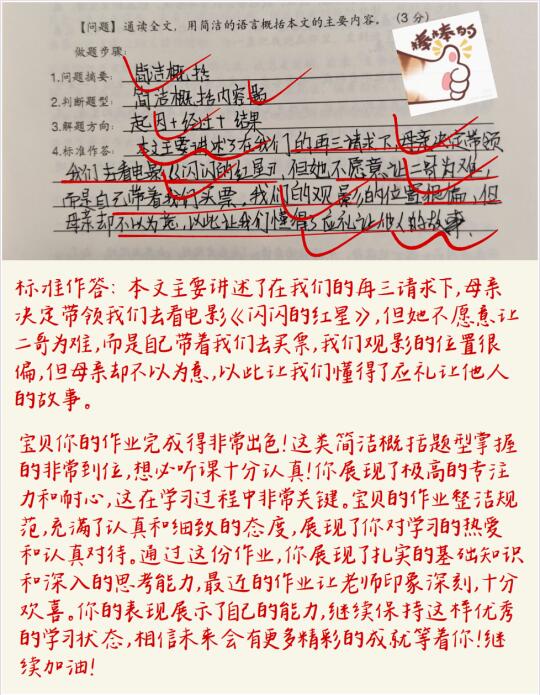 【问题】通读全文，用简洁的语言概括本文的主要内容。（3分）
棒棒的
做题步骤：
1.问题摘要：简洁概括
2.判断题型：简洁概括内容题
3.解题方向：起因+经过+结果
4.标准作答：本文主要讲述了在我们的再三请求下,母亲决定带领
我们去看电影《闪闪的红星》,但她不愿意让二哥为难,
而是自己带着我们去买票,我们的观影的位置很偏,但
母亲却不以为意,以此让我们懂得了应礼让他人的故事.
标准作答：本文主要讲述了在我们的再三请求下,母亲
决定带领我们去看电影《闪闪的红星》,但她不愿意让
二哥为难,而是自己带着我们去买票,我们观影的位置很
偏,但母亲却不以为意,以此让我们懂得了应礼让他人
的故事。
宝贝你的作业完成得非常出色!这类简洁概括题型掌握
的非常到位,想必听课十分认真!你展现了极高的专注
力和耐心,这在学习过程中非常关键。宝贝的作业整洁规
范,充满了认真和细致的态度,展现了你对学习的热爱
和认真对待。通过这份作业,你展现了扎实的基础知识
和深入的思考能力,最近的作业让老师印象深刻,十分
欢喜。你的表现展示了自己的能力,继续保持这样优秀
的学习状态,相信未来会有更多精彩的成就等着你!继
续加油!